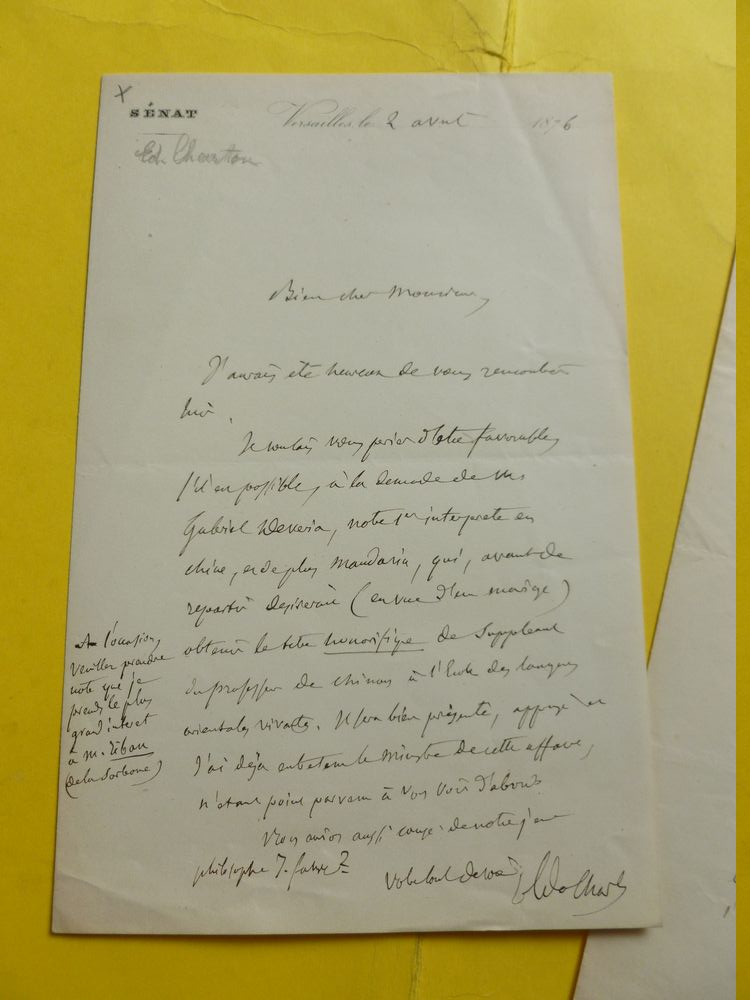 SÉNAT
Versailles, le 2 avril 1876
Ed. Charton
Bien cher Monsieur,
J'aurais été heureux de vous rencontrer
hier.
Je voulais vous prier d'être favorable,
s'il est possible, à la demande de Mr
Gabriel Devéria, notre 1er interprète en
chine, et de plus Mandarin, qui, avant de
repartir desirerait (en vue d'un mariage)
obtenir le titre honorifique de Suppléant
du professeur de chinois à l'École des langues
orientales vivantes. Il sera bien présenté, appuyé et
J'ai déjà entretenu le Ministre de cette affaire,
n'étant point parvenu à vous voir d'abord.
Vous avions aussi causé de notre jeune
philosophe J. Fabre?
Votre tout dévoué
Ed Charton
A l'occasion,
veuillez prendre
note que je
prends le plus
grand intérêt
à m.
(de la Sorbonne)